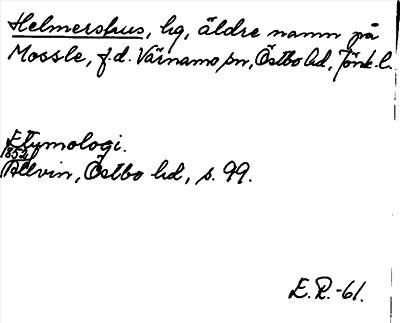 Helmershus, hg, äldre namn på
Mossle, f.d. Värnamo sn, Östbo hd, Jönk. l.
Etymologi.
1852
Allvin, Östbo hd, s. 99.
E.R.-61.